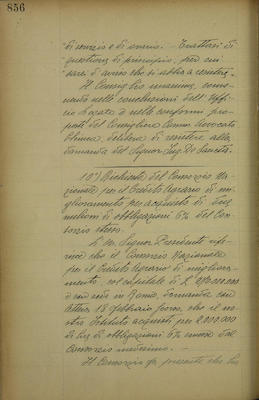 856
di servizio e di onorario. - Trattasi di
questione di principio, però
sarei d'avviso che si abbia a resistere.
Il Consiglio unanime,
nelle conclusioni dell'Uffi-
cio Legale e nelle conformi pro-
poste del Consigliere Comm. Avvocato
delibera di resistere alla
domanda del Signor Ing. De Sanctis.
10) Richiesta del Consorzio Na-
zionale per il Credito Agrario di mi-
glioramento per acquisto di due
milioni di obbligazioni 6% del Con-
sorzio stesso.
L'Ill. Signor Presidente rife-
risce che il Consorzio Nazionale
per il Credito Agrario di migliora-
mento, col capitale di L.
e con sede in Roma, domanda con
lettera 18 febbraio scorso, che il no-
stro Istituto acquisti per 2.000.000
di Lire di obbligazioni 6% emesse dal
Consorzio medesimo.
Il Consorzio fa presente che